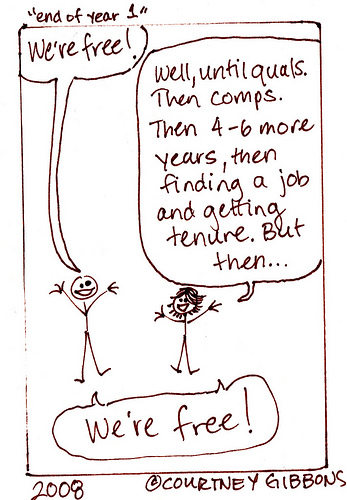 "end of year 1"
We're free!
Well, until quals.
Then comps.
Then 4-6 more
years, then
finding a job
and getting
tenure. But
then...
We're free!
2008 ©COURTNEY GIBBONS